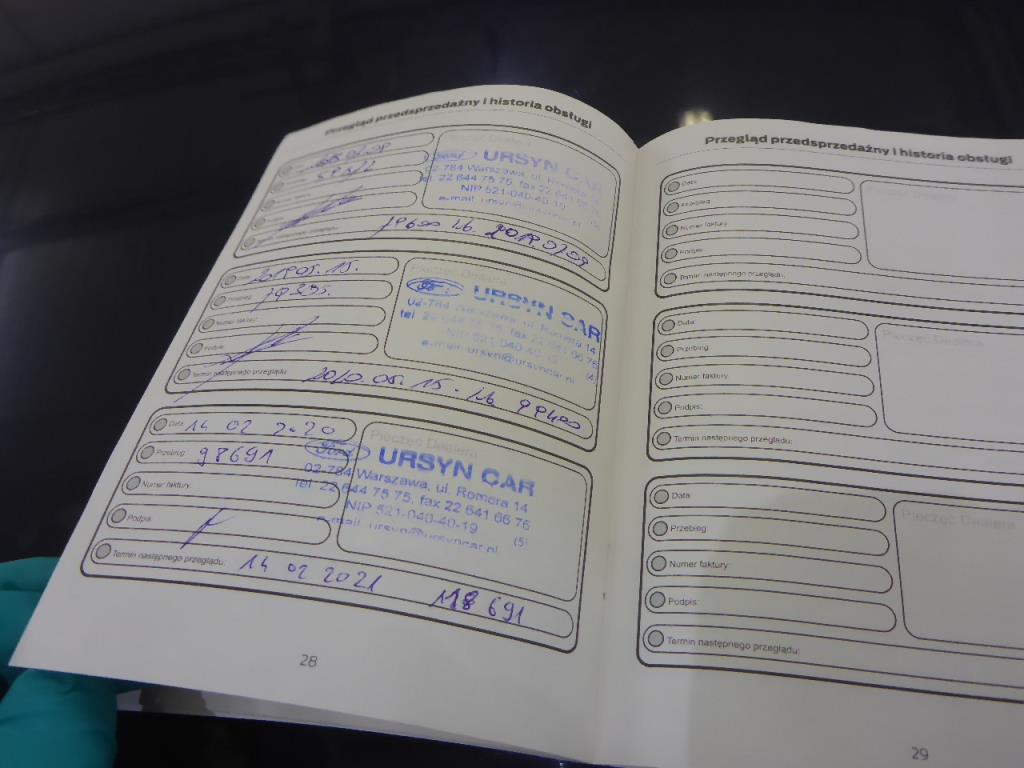 Przegląd przedsprzedażny i historia obsługi
Ford URSYN CAR
02-784 Warszawa, ul. Romera 14
tel. 22 644 75 75, fax 22 641 66 76
NIP 521-040-40-19
e-mail: ursyn@ursyncar.pl
Data
Przebieg
Numer faktury:
Podpis:
Termin następnego przeglądu:
Pieczęć Dealera
Ford URSYN CAR
02-784 Warszawa, ul. Romera 14
tel. 22 644 75 75, fax 22 641 66 76
NIP 521-040-40-19
e-mail: ursyn@ursyncar.pl
(4)
2020.05.15.
Data: 14 02 2020
Przebieg: 98691
Numer faktury:
Podpis:
Pieczęć Dealera
Ford URSYN CAR
02-784 Warszawa, ul. Romera 14
tel. 22 644 75 75, fax 22 641 66 76
NIP 521-040-40-19
e-mail: ursyn@ursyncar.pl
(5)
Termin następnego przeglądu: 14 02 2021 118 691
28
Przegląd przedsprzedażny i historia obsługi
Data:
Przebieg:
Numer faktury:
Podpis:
Termin następnego przeglądu:
Pieczęć Dealera
Data:
Przebieg:
Numer faktury:
Podpis:
Termin następnego przeglądu:
Pieczęć Dealera
Data:
Przebieg:
Numer faktury:
Podpis:
Termin następnego przeglądu:
Pieczęć Dealera
29